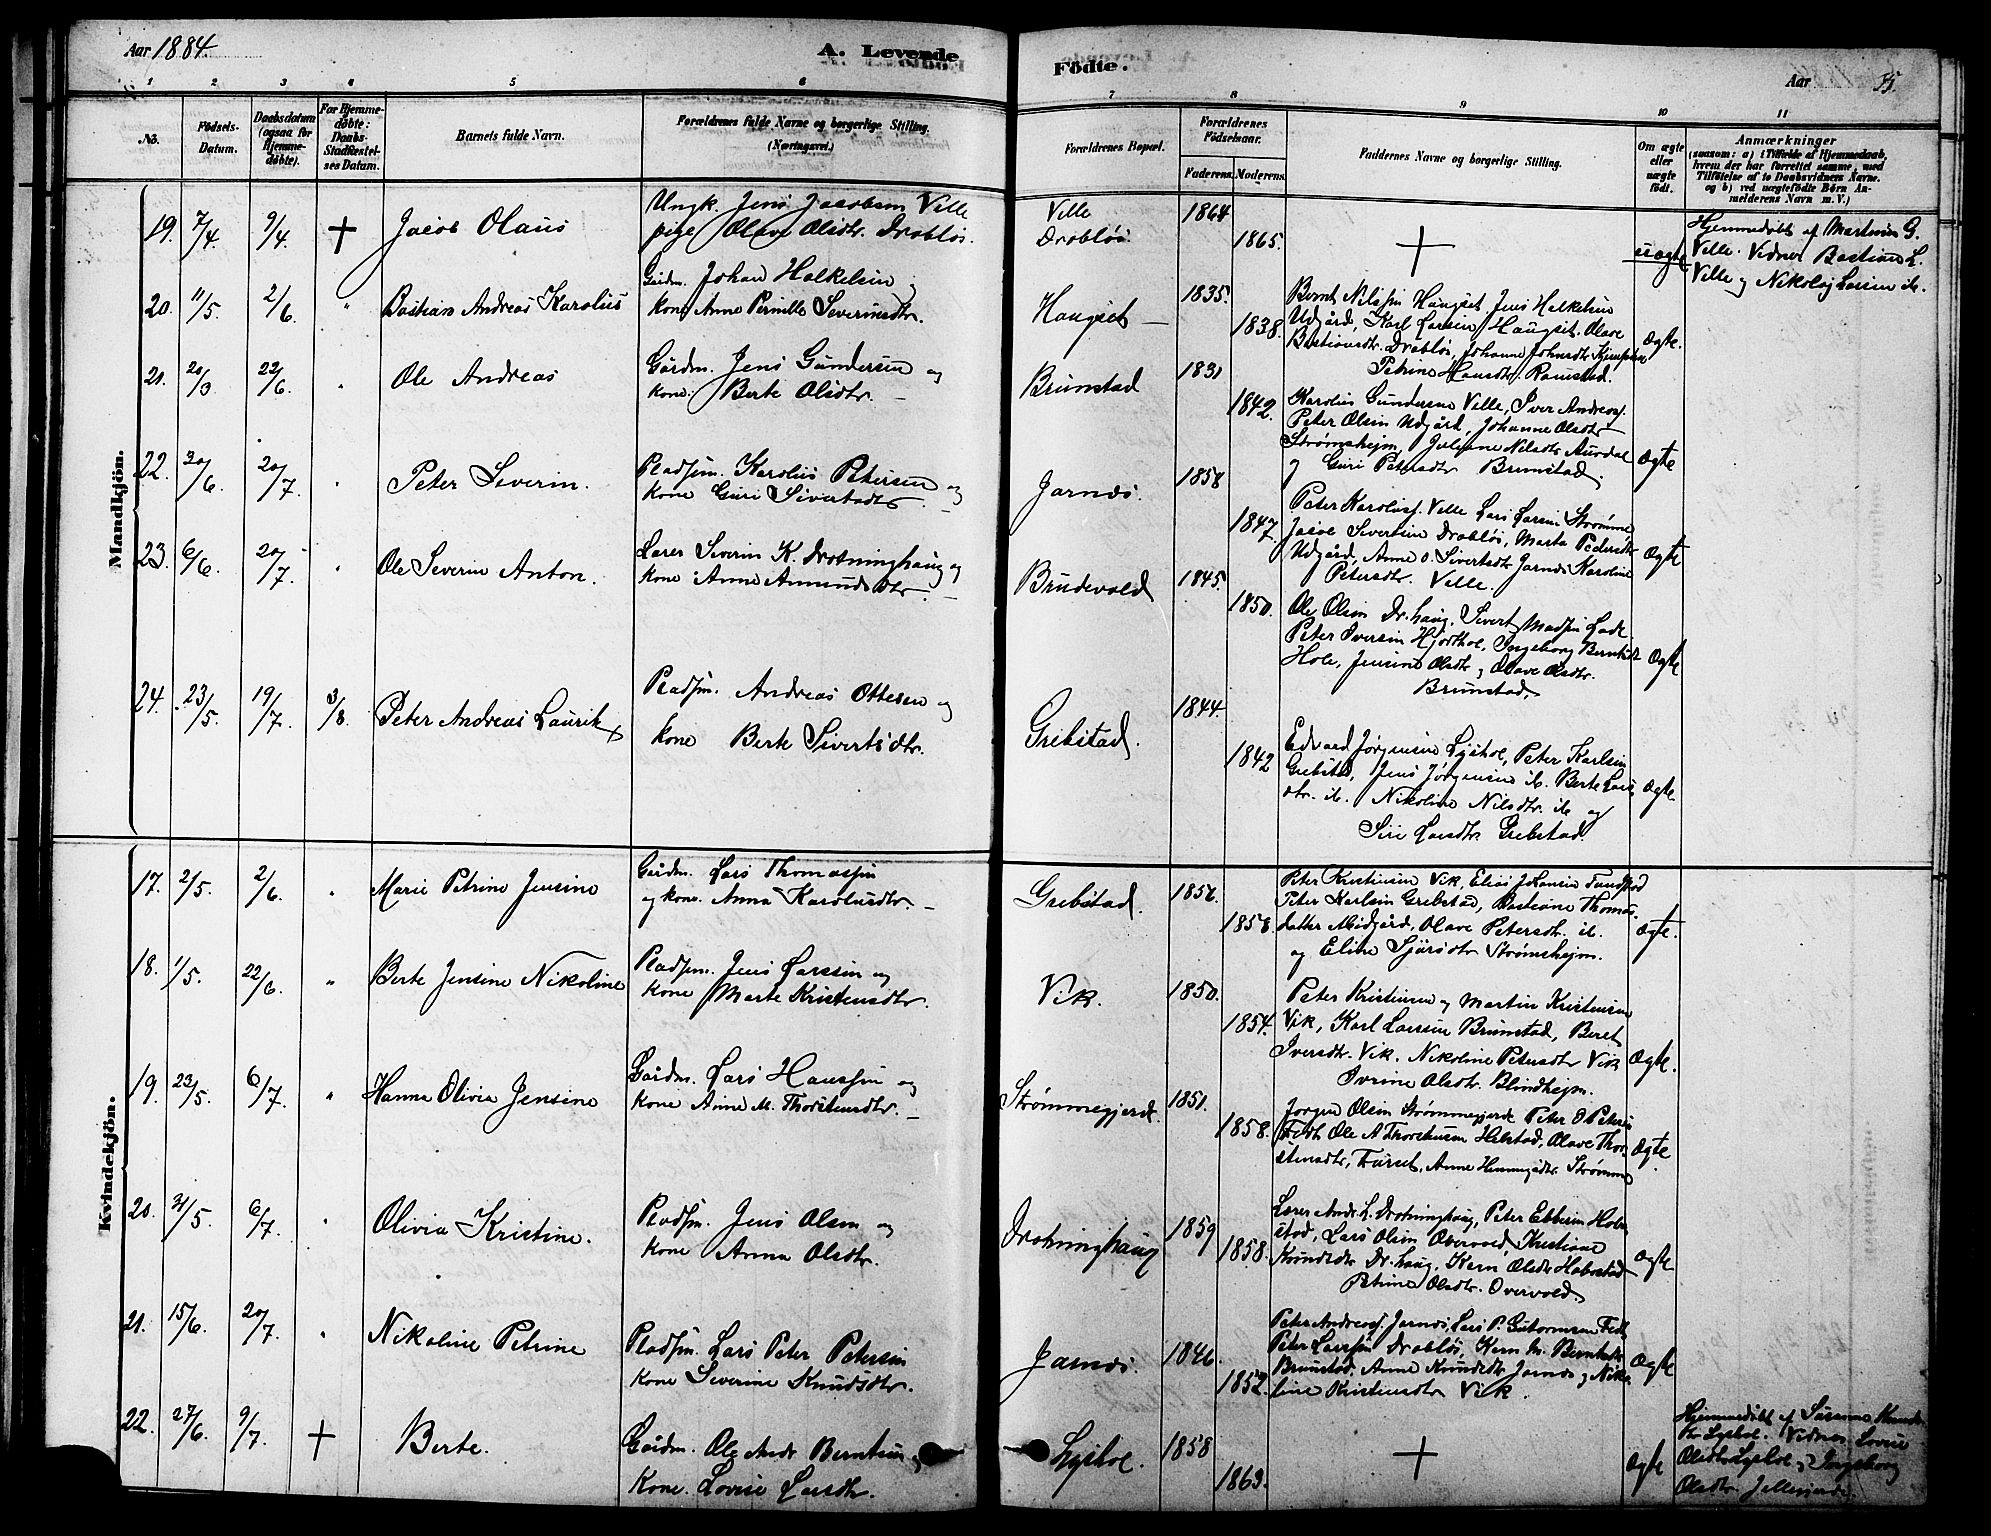 Aar 1884.
A. Levende
Födte.
Aar
1
2
3
4
5
6
7
8
9
10
11
No.
Födsels-
Datum.
Daabsdatum
(ogsaa for
Hjemme-
døbte).
For Hjemme-
døbte:
Daabs-
Stadfæstel-
ses Datum.
Barnets fulde Navn.
Forældrenes fulde Navne og borgerlige Stilling.
(Næringsvei.)
Forældrenes Bopæl.
Forældrenes
Födselsaar.
Faderens.
Moderens.
Faddernes Navne og borgerlige Stilling.
Om ægte
eller
uægte
født.
Anmærkninger
(saasom: a) i Tilfælde af Hjemmedaab,
hvem der har forrettet samme, med
Tilföielse af to Daabsvidners Navne.
og b) ved uægtefödte Börn An-
melderens Navn m. V.)
Mandkjön.
19. 7/4 9/4 + Jacob Olaus
Ungk. Jens Jacobsen Velle
pige Olave Olsdtr. Drabløs.
Velle
Drabløs
1864
1865.
+
uægte
Hjemmedøbt af Martinus G.
Velle. Vidner Bastian L.
Velle og Nikolaj Larsen ib.
20. 11/5 2/6 " Bastian Andreas Karolus
Gårdm. Johan Halkelsen og
kone Anne Pernille Severinsdtr.
Haugset
1835.
1838.
Bernt Nilssen Haugset, Jens Halkelsen
Udgård, Karl Larsen Haugset. Olave
Bastiansdtr. Drabløs, Johanne Johnsdtr.
Petrine Hansdtr. Ramstad.
Ægte.
21. 20/3 22/6 " Ole Andreas
Gårdm. Jens Gundersen og
kone. Berte Olsdtr.
Brunstad
1831
1842.
Karolus Gundersen Velle, Iver Andreass.
Peter Olsen Udgård, Johanne Olsdtr
Strømshejm, Juliane Nilsdtr Aurdal
og Guri Petersdtr Brunstad.
Ægte
22. 20/6 20/7 " Peter Severin.
Pladsm. Karolus Petersen og
kone Guri Sivertsdtr.
Jarnæs.
1858
1847.
Peter Karoluss. Velle Lars Larsen Strømme
Jacob Severinsen Drabløs, Marta Pedersdtr
Udgård, Anne O. Sivertsdtr Jarnæs Karoline
Petersdtr. Velle.
Ægte
23. 6/6 20/7 " Ole Severin Anton.
Lærer Severin K. Drotninghaug og
kone Anne Amunds Dtr.
Brudevold
1845.
1850.
Ole Olsen Dr.haug, Sivert Madsen Lade
Peter Iversen Hjorthol, Ingeborg Berntsdtr
Hole, Jensine Olsdtr og Olave Olsdtr.
Brunstad.
Ægte
24. 23/5 19/7 3/8. Peter Andreas Laurits
Pladsm. Andreas Ottesen og
kone Berte Sivertsdtr.
Grebstad.
1844.
1842
Edvard Jørgensen Lyshol, Peter Karlsen
Grebstd, Jens Jørgensen ib. Berte Lars
dtr. ib. Nikoline Nilsdtr. ib og
Siri Larsdtr. Grebstad
Ægte.
Kvindekjön.
17. 2/5. 2/6 " Marie Petrine Jensine
Gårdm. Lars Thomassen
og kone. Anna Karolusdtr.
Grebstad.
1856.
1858.
Peter Kristensen Vik, Elias Johansen Tandstad
Peter Karlsen Grebstad, Bastiane Thomas.
datter Midgård, Olave Petersdtr. ib.
og Eline Sjursdtr Strømshejm.
Ægte.
18. 1/5. 22/6 " Berte Jensine Nikoline
Pladsm. Jens Larssen og
kone Marte Kristensdtr.
Vik.
1850.
1854.
Peter Kristensen og Martin Kristensen
Vik, Karl Larssen Brunstad, Beret
Iversdtr. Vik. Nikoline Petersdtr Vik
Ivrine Olsdtr. Blindhejm.
Ægte.
19. 23/5 6/7. " Hanna Olivia Jensine
Gårdm. Lars Hanssen og
kone Anne M. Thorstensdtr.
Strømmegjerde.
1851.
1858.
Jørgen Olsen Strømmegjerde Peter O Peters
Fedt Ole A Thorstensen Helstad, Olave Thor
stensdtr, Furset, Anne Hemmingsdtr Strømme
Ægte
20. 31/5. 6/7. " Olivia Kristine.
Pladsm. Jens Olsen og
kone Anna Olsdtr.
Drotninghaug
1859
1858.
Lærer Andr. L. Drotninghaug, Peter Ebbesen Habo
stad, Lars Olsen Overvold, Kristiane
Knudsdtr Dr.haug. Karn Olsdtr Habostad
Petrine Olsdtr. Overvold.
Ægte
21. 15/6. 20/7. " Nikoline Petrine
Pladsm. Lars Peter Petersen
kone Severine Knudsdtr.
Jarnæs
1846.
1852.
Peter Andreass. Jarnæs, Lars P. Guttormsen Fedt
Peter Larssen Drabløs, Karn M. Berntsdtr
Brunstad. Anne Knudsdtr Jarnæs og Niko
line Kristensdtr Vik.
Ægte
22. 27/6. 9/7. + Berte.
Gårdm. Ole Andr Berntsen og
kone. Lovise Larsdtr.
Lyshol.
1858
1863.
+
Ægte
Hjemmedøbt af Susanne Knuds
dtr Lyshol. Vidner Lovise
Olsdtr Lyshol og Ingeborg
Olsdtr.